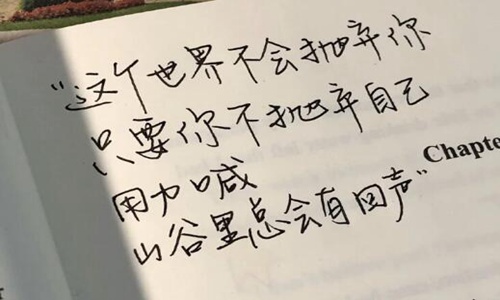 “这个世界不会抛弃你
只要你不抛弃自己
用力喊
山谷里总会有回声”
Chapte